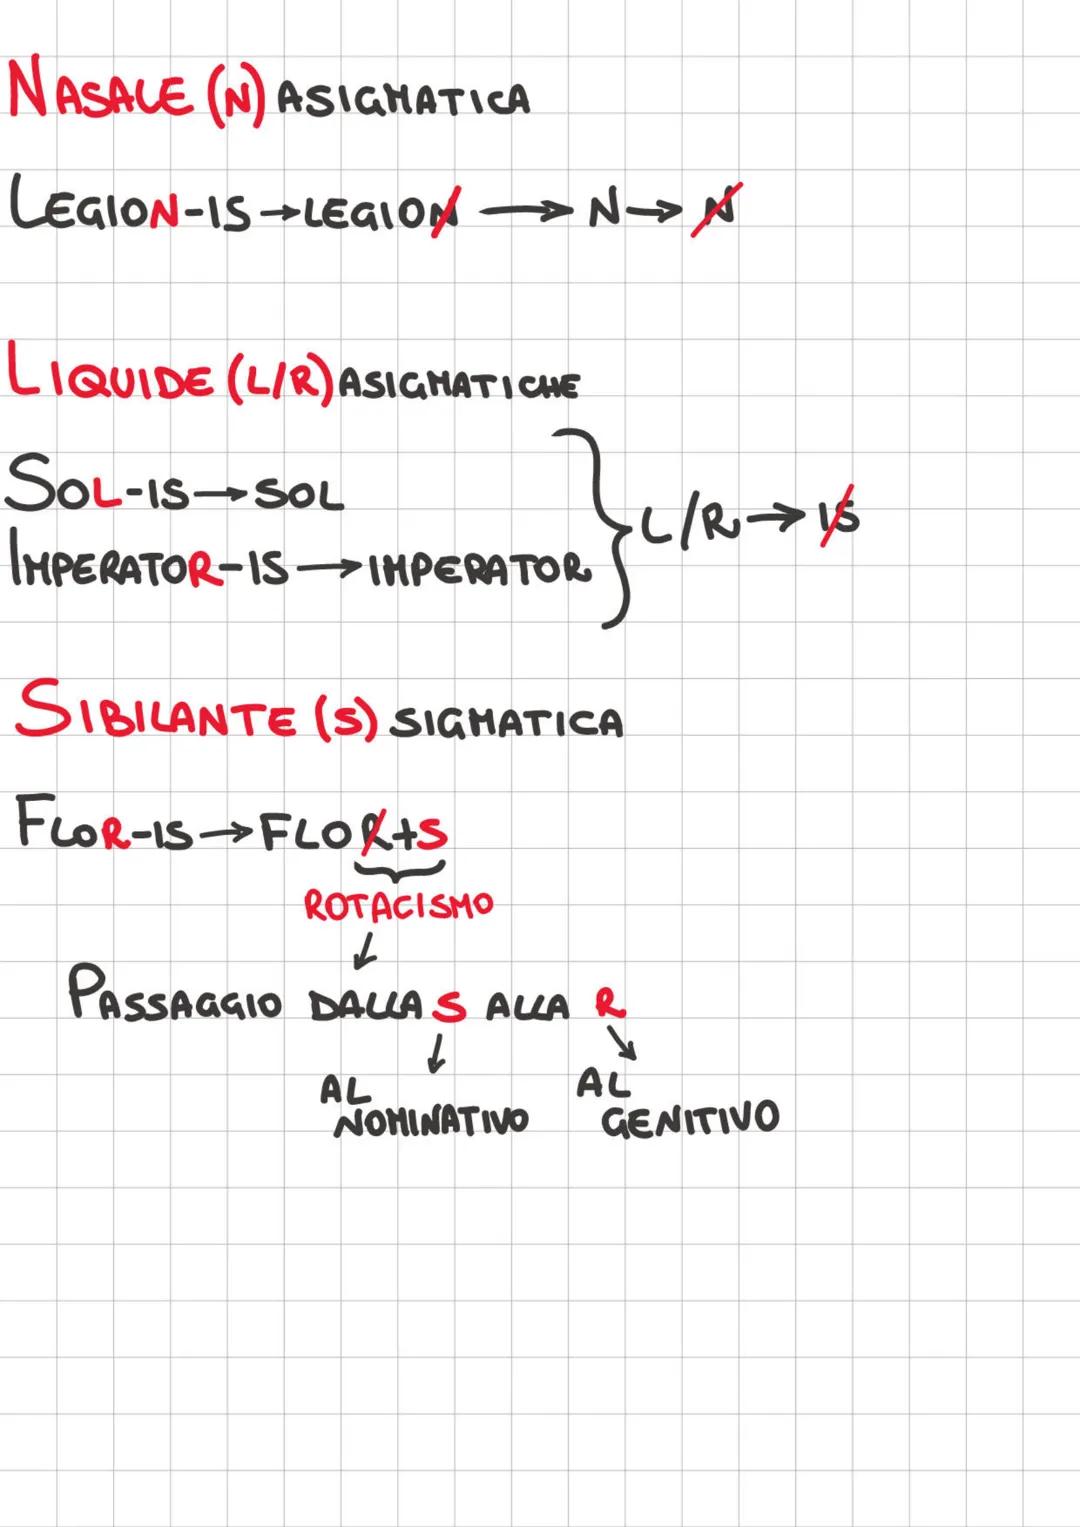 NASALE (N) ASIGMATICA
LEGION-IS → LEGION → N → N
LIQUIDE (L/R) ASIGMATICHE
SOL-IS → SOL
IMPERATOR-IS → IMPERATOR
L/R → IS
SIBILANTE (S) SIGMATICA
FLOR-IS → FLOR+S
ROTACISMO
PASSAGGIO DALLA S ALLA R
AL NOMINATIVO
AL GENITIVO